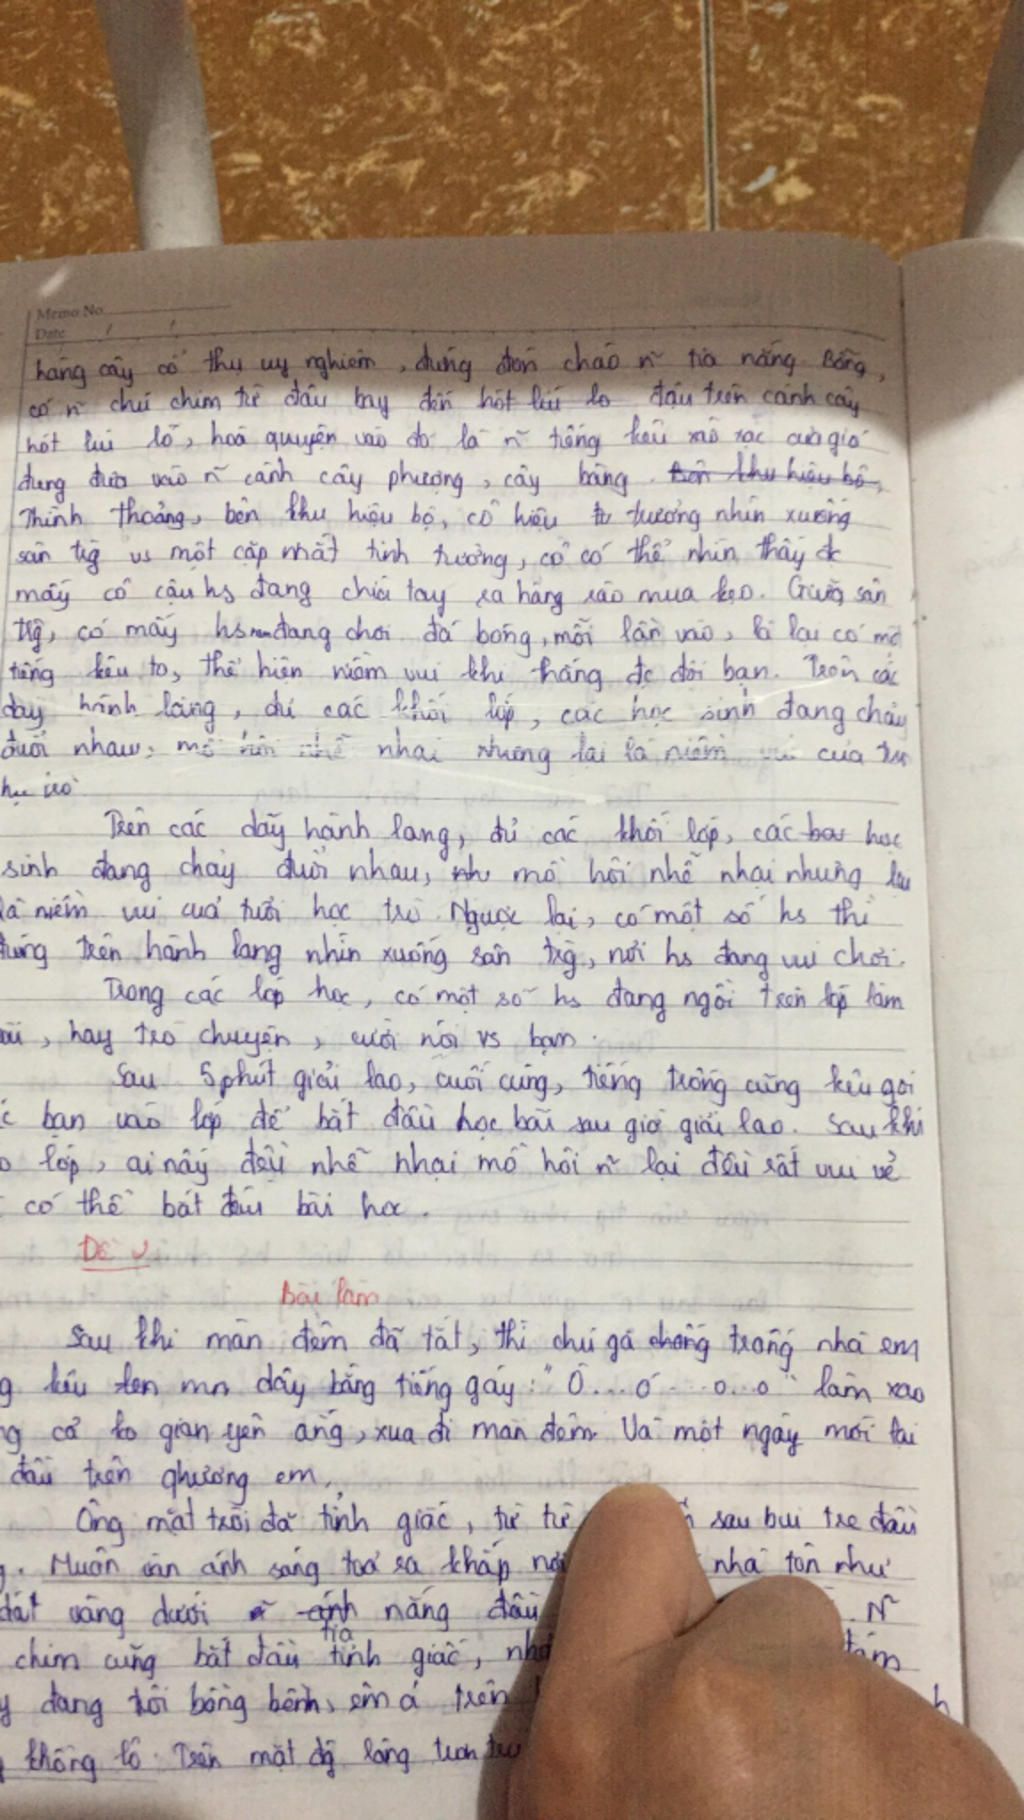 Memo No.
Date / /
hàng cây cổ thụ uy nghiêm, đứng đón chào n~ tia nắng. Bỗng,
có n~ chú chim từ đâu bay đến hót líu lo đậu trên cành cây
hót líu lo, hoà quyện vào đó là n~ tiếng kêu xào xạc của gió
đung đưa vào n~ cành cây phượng, cây bàng. Bên khu hiệu bộ,
Thỉnh thoảng, bên khu hiệu bộ, cô hiệu tr trưởng nhìn xuống
sân trg vs một cặp mắt tinh tường, cô có thể nhìn thấy đc
mấy cô cậu hs đang chìa tay ra hàng rào mua kẹo. Giữa sân
trg, có mấy hs đang chơi đá bóng, mỗi lần vào, là lại có một
tiếng kêu to, thể hiện niềm vui khi thắng đc đội bạn. Trên các
dãy hành lang, đủ các khối lớp, các học sinh đang chạy
đuổi nhau, mồ hôi nhễ nhại nhưng lại là niềm vui của tuổi
học trò.
Trên các dãy hành lang, đủ các khối lớp, các học
sinh đang chạy đuổi nhau, mồ hôi nhễ nhại nhưng lại
là niềm vui của tuổi học trò. Ngược lại, có một số hs thì
đứng trên hành lang nhìn xuống sân trg, nơi hs đang vui chơi.
Trong các lớp học, có một số hs đang ngồi trên lớp làm
, hay trò chuyện, cười nói vs bạn.
Sau 5 phút giải lao, cuối cùng, tiếng trống cũng kêu gọi
bạn vào lớp để bắt đầu học bài sau giờ giải lao. Sau khi
lớp, ai nấy đều nhễ nhại mồ hôi n~ lại đều rất vui vẻ
có thể bắt đầu bài học.
Đề
Bài làm
Sau khi màn đêm đã tắt, thì chú gà trống nhà em
kêu mn dậy bằng tiếng gáy: "Ò... ó... o..o" làm xao
cả ko gian yên ắng, xua đi màn đêm. Và một ngày mới lại
đầu trên quê hương em.
Ông mặt trời đã tỉnh giấc, từ từ sau bụi tre đầu
Muôn vàn ánh sáng toả ra khắp nhà tôn như
dát vàng dưới tia nắng đầu N~
chim cũng bắt đầu tỉnh giấc,
đang trôi bồng bềnh, êm ả trên
khổng lồ. Trên mặt